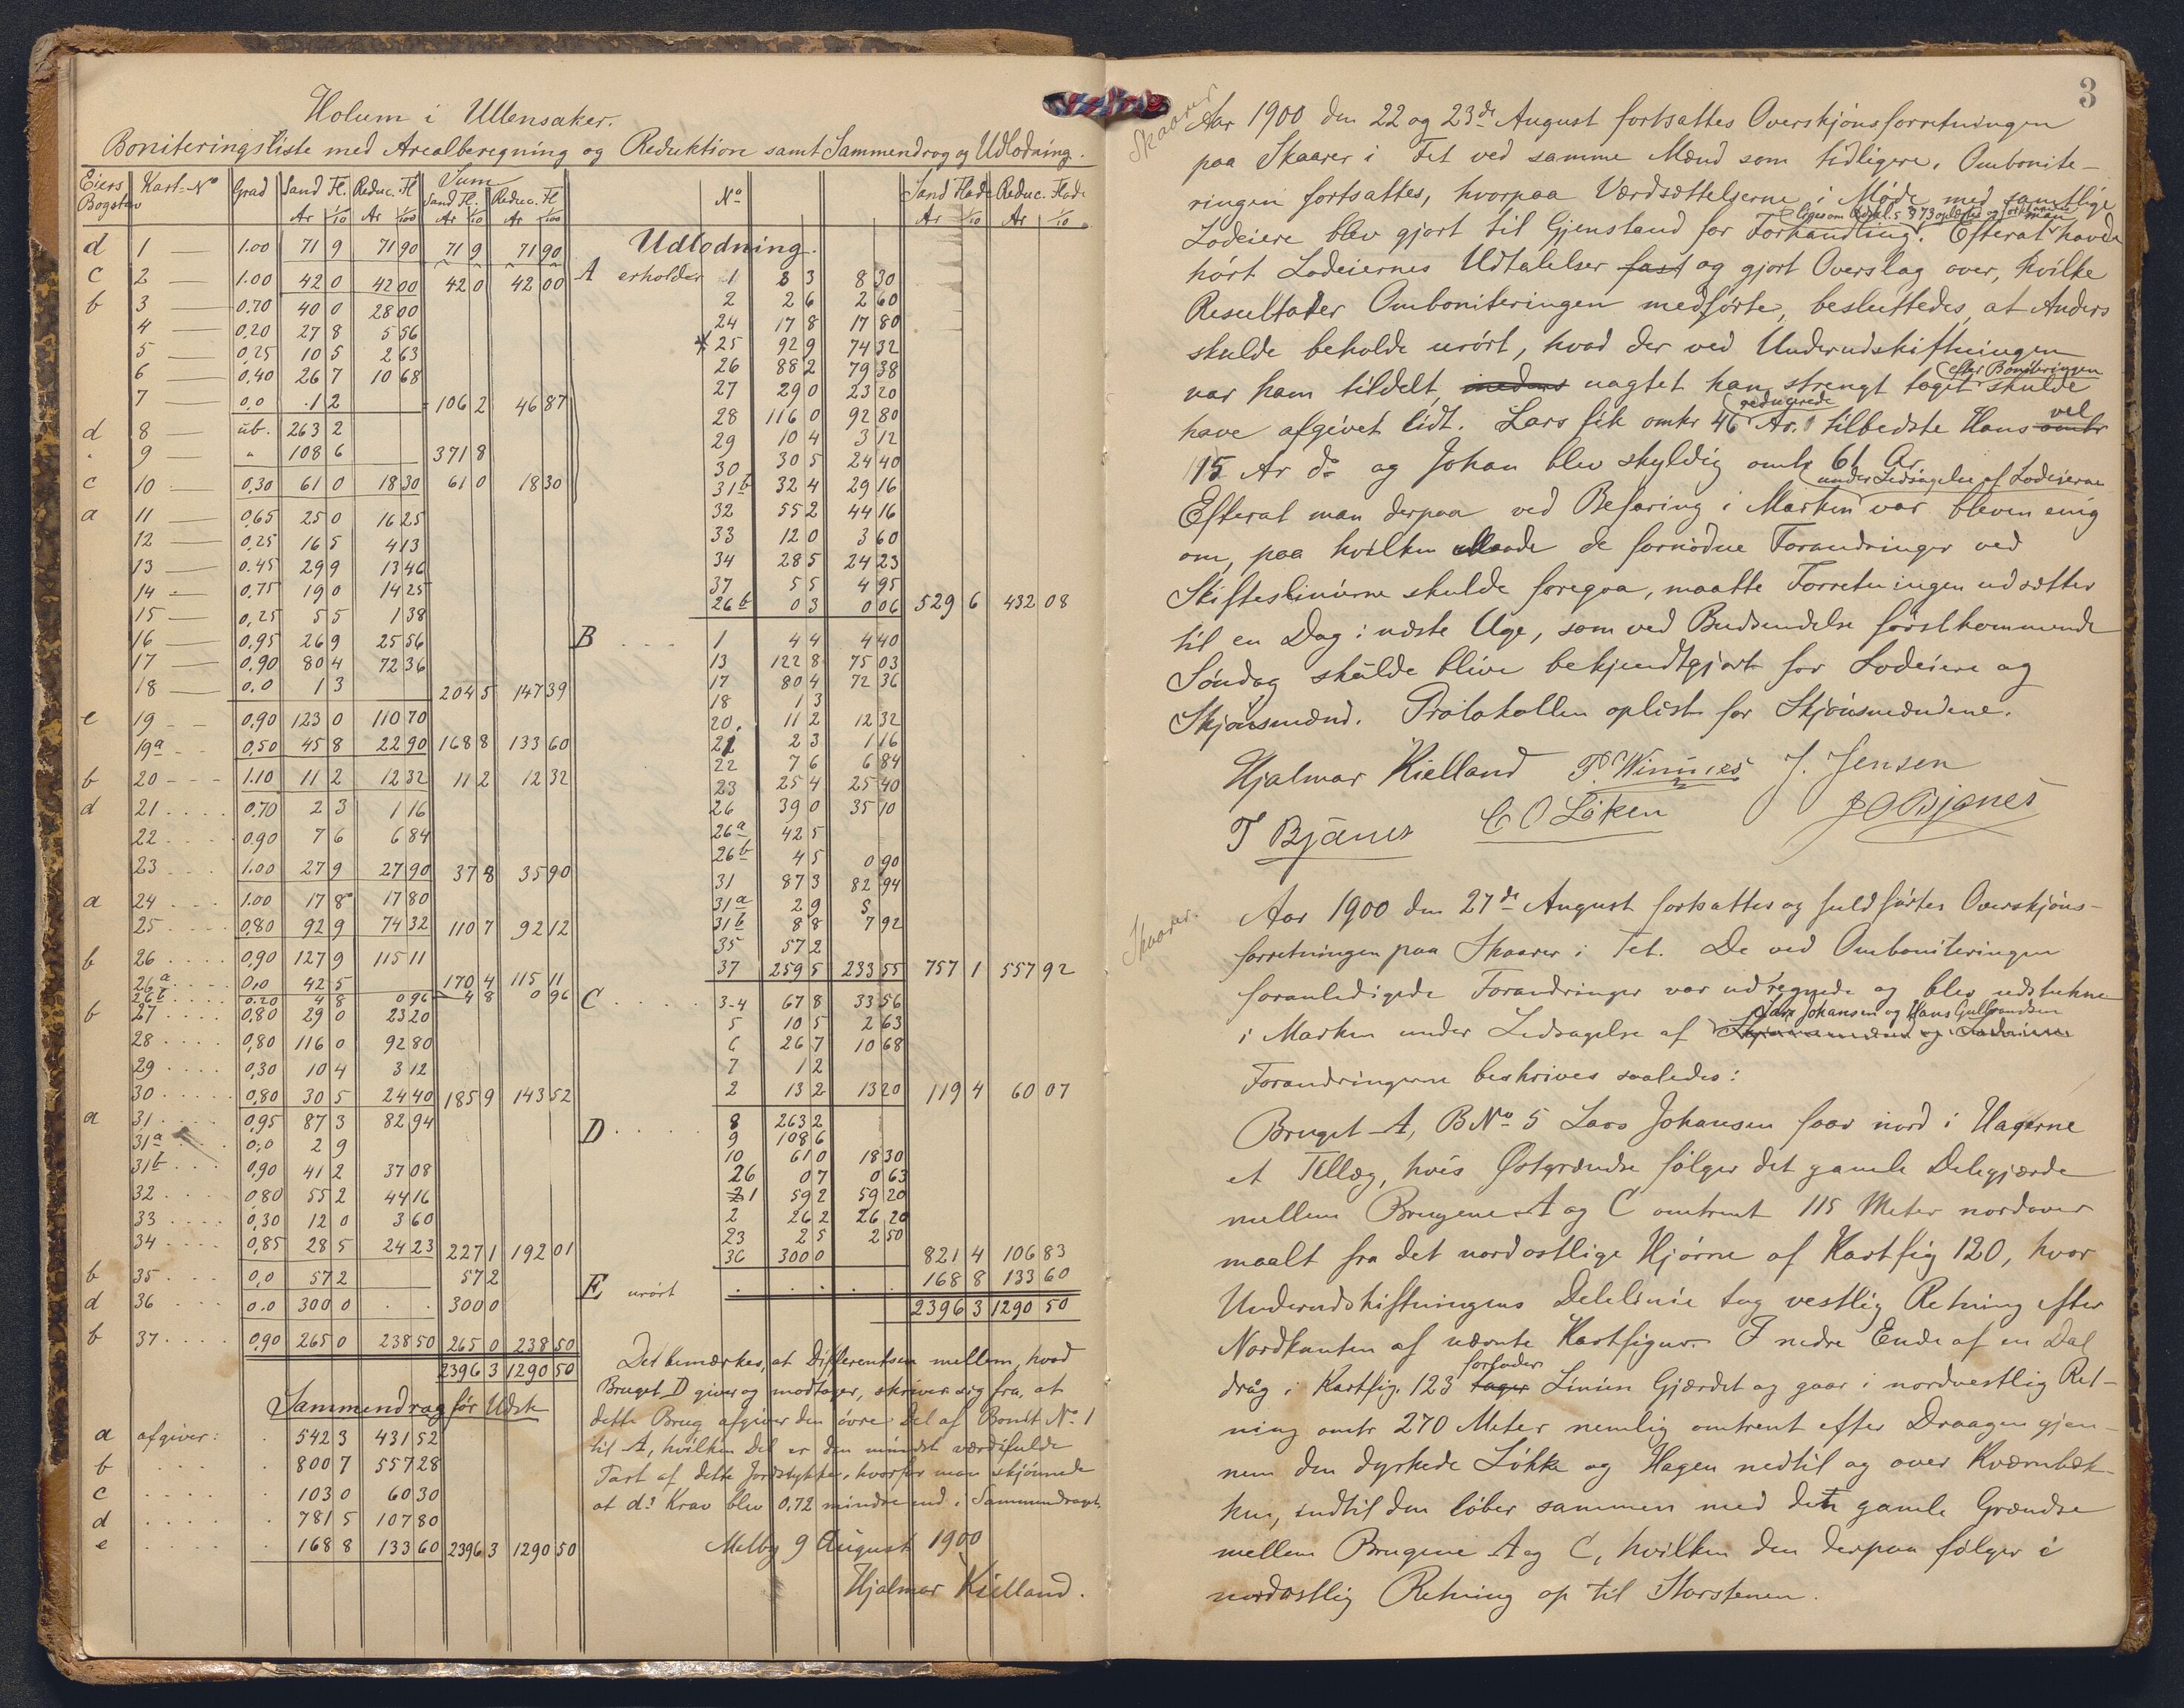 Holum i Ullensaker.
Boniteringsliste med Arealberegning og Reduktion samt Sammendrag og Udlodning.
Eiers Bogstav Kart-No Grad Sand Fl. Reduc. Fl Sum Sand Fl. Reduc. Fl
Ar 1/10 Ar 1/100 Ar 1/10 Ar 1/100
d 1 — 1.00 71 9 71 90 71 9 71 90
c 2 — 1.00 42 0 42 00 42 0 42 00
b 3 — 0.70 40 0 28 00
4 — 0.20 27 8 5 56
5 — 0,25 10 5 2 63
6 — 0,40 26 7 10 68
7 — 0,0 1 2 106 2 46 87
d 8 — ub. 263 2
" 9 — " 108 6 371 8
c 10 — 0,30 61 0 18 30 61 0 18 30
a 11 — 0,65 25 0 16 25
12 — 0,25 16 5 4 13
13 — 0.45 29 9 13 46
14 — 0,75 19 0 14 25
15 — 0,25 5 5 1 38
16 — 0,95 26 9 25 56
17 — 0,90 80 4 72 36
18 — 0.0 1 3 204 5 147 39
e 19 - - 0,90 123 0 110 70
19a - - 0,50 45 8 22 90 168 8 133 60
b 20 - - - 1.10 11 2 12 32 11 2 12 32
d 21 . . . . 0,70 2 3 1 16
22 . . . . 0.90 7 6 6 84
23 . . . 1.00 27 9 27 90 37 8 35 90
a 24 . . . 1.00 17 8 17 80
25 . . . . 0,80 92 9 74 32 110 7 92 12
b 26 . . . . 0,90 127 9 115 11
26a . . . . 0,0 42 5 170 4 115 11
26b . . . . 0.20 4 8 0 96 4 8 0 96
b 27 . . . . 0,80 29 0 23 20
28 . . . . 0,80 116 0 92 80
29 . . . . 0,30 10 4 3 12
30 . . . . 0,80 30 5 24 40 185 9 143 52
a 31 . . . . 0,95 87 3 82 94
31a . . . 0,0 2 9
31b . . . 0,90 41 2 37 08
32 . . . . 0,80 55 2 44 16
33 . . . . 0,30 12 0 3 60
34 . . . . 0,85 28 5 24 23 227 1 192 01
b 35 . . . 0,0 57 2 57 2
d 36 . . . 0.0 300 0 . . 300 0
b 37 . . . . 0,90 265 0 238 50 265 0 238 50
2396 3 1290 50
Sammendrag før Udsk
a afgiver: . 542 3 431 52
b . . . . . 800 7 557 28
c . . . . . 103 0 60 30
d . . . . . 781 5 107 80
e . . . . . 168 8 133 60 2396 3 1290 50
No Sand Flade Reduc. Flade
Ar 1/10 Ar 1/10
Udlodning.
A erholder 1 8 3 8 30
2 2 6 2 60
24 17 8 17 80
* 25 92 9 74 32
26 88 2 79 38
27 29 0 23 20
28 116 0 92 80
29 10 4 3 12
30 30 5 24 40
31b 32 4 29 16
32 55 2 44 16
33 12 0 3 60
34 28 5 24 23
37 5 5 4 95
26b 0 3 0 06 529 6 432 08
B . . . 1 4 4 4 40
13 122 8 75 03
17 80 4 72 36
18 1 3
20. 11 2 12 32
21 2 3 1 16
22 7 6 6 84
23 25 4 25 40
26 39 0 35 10
26a 42 5
26b 4 5 0 90
31 87 3 82 94
31a 2 9
31b 8 8 7 92
35 57 2
37 259 5 233 55 757 1 557 92
C . . . . . 3-4 67 8 33 56
5 10 5 2 63
6 26 7 10 68
7 1 2
2 13 2 13 20 119 4 60 07
D . . . . . 8 263 2
9 108 6
10 61 0 18 30
26 0 7 0 63
1 59 2 59 20
2 26 2 26 20
23 2 5 2 50
36 300 0 821 4 106 83
E urørt . . . . . 168 8 133 60
2396 3 1290 50
Det bemærkes, at Differentsen mellem, hvad
Bruget D giver og modtager, skriver sig fra, at
dette Brug afgiver den øvre Del af Bonit No 1
til A, hvilken Del er den mindst værdifulde
Part af dette Jordstykke, hvorfor man skjønnede
at d:s Krav blev 0,72 mindre end i Sammendraget.
Melby 9 August 1900
Hjalmar Kielland.
3
Skaarer
Aar 1900 den 22 og 23de August fortsattes Overskjønsforretningen
paa Skaarer i Fet ved samme Mænd som tidligere. Ombonite-
ringen fortsattes, hvorpaa Værdsættelserne i Møde med samtlige
Lodeiere blev gjort til Gjenstand for Forhandling. Efterat man havde
hørt Lodeiernes Udtalelser fast og gjort Overslag over, hvilke
Resultater Omboniteringen medførte, besluttedes, at Anders
skulde beholde urørt, hvad der ved Underudskiftningen
var ham tildelt, medens uagtet han strengt taget efter Boniteringen skulde
have afgivet lidt. Lars fik omkr 46 reducerede Ar. tilbedste Hans omkr vel
15 Ar do og Johan blev skyldig omkr 61 Ar
Efterat man derpaa ved Befaring i Marken under Ledsagelse af Lodeierne var bleven enig
om, paa hvilken Maade de fornødne Forandringer ved
Skifteslinierne skulde foregaa, maatte Forretningen udsættes
til en Dag i næste Uge, som ved Budsendelse førstkommende
Søndag skulde blive bekjendtgjort for Lodeiere og
Skjønsmænd. Protokollen oplæst for Skjønsmændene.
Hjalmar Kielland J. Jensen
T Bjånes C O Løken
Skaarer.
Aar 1900 den 27de August fortsattes og fuldførtes Overskjøns-
forretningen paa Skaarer i Fet. De ved Omboniteringen
foranledigede Forandringer var udregnede og blev udstukne
i Marken under Ledsagelse af Skjønsmænd og Lodeierne Lars Johansen og Hans Gulbrandsen
Forandringerne beskrives saaledes:
Bruget A, BNo 5 Lars Johansen faar nord i Hagerne
et Tillæg, hvis Østgrændse følger det gamle Delegjærde
mellem Brugene A og C omtrent 115 Meter nordover
maalt fra det nordostlige Hjørne af Kartfig 120, hvor
Underudskiftningens Delelinie tog vestlig Retning efter
Nordkanten af nævnte Kartfigur. I nedre Ende af en Dal
dråg i Kartfig. 123 tager forlader Linien Gjærdet og gaar i nordvestlig Ret-
ning omtr 270 Meter nemlig omtrent efter Draagen gjen-
nem den dyrkede Løkke og Hagen nedtil og over Kværnbæk-
ken, indtil den løber sammen med den gamle Grændse
mellem Brugene A og C, hvilken den derpaa følger i
nordostlig Retning op til Storstenen.